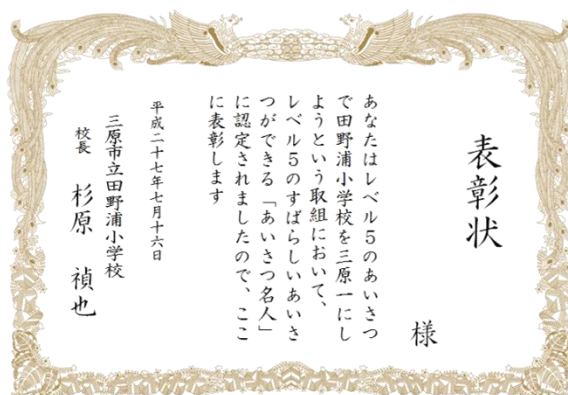 表彰状
様
あなたはレベル５のあいさつ
で田野浦小学校を三原一にし
ようという取組において、
レベル５のすばらしいあいさ
つができる「あいさつ名人」
に認定されましたので、ここ
に表彰します
平成二十七年七月十六日
三原市立田野浦小学校
校長　杉原　禎也